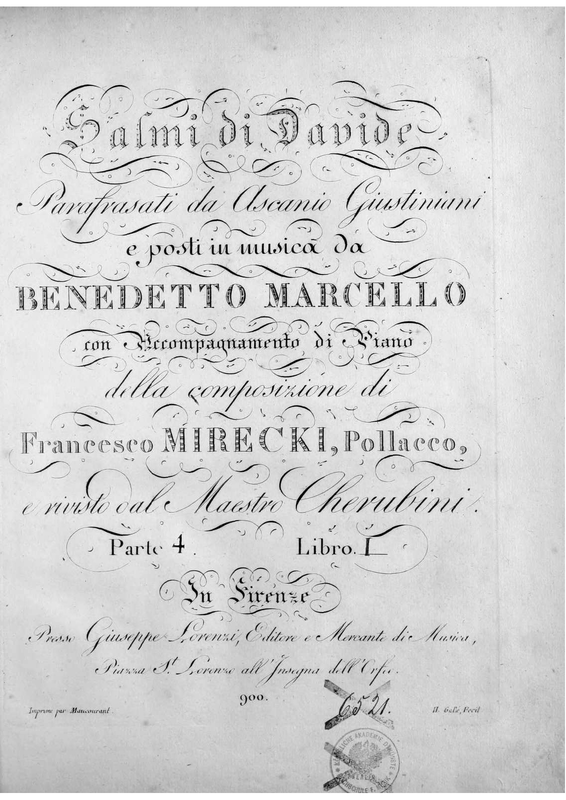 Salmi di Davide
Parafrasati da Ascanio Giustiniani
e posti in musica da
BENEDETTO MARCELLO
con Accompagnamento di Piano
della composizione di
Francesco MIRECKI, Pollacco,
e rivisto dal Maestro Cherubini.
Parte 4. Libro. I
In Firenze
Presso Giuseppe Lorenzi, Editore e Mercante di Musica,
Piazza St. Lorenzo all'Insegna dell'Orfeo.
900.
6521.
Imprime par Maucourant
Fecit